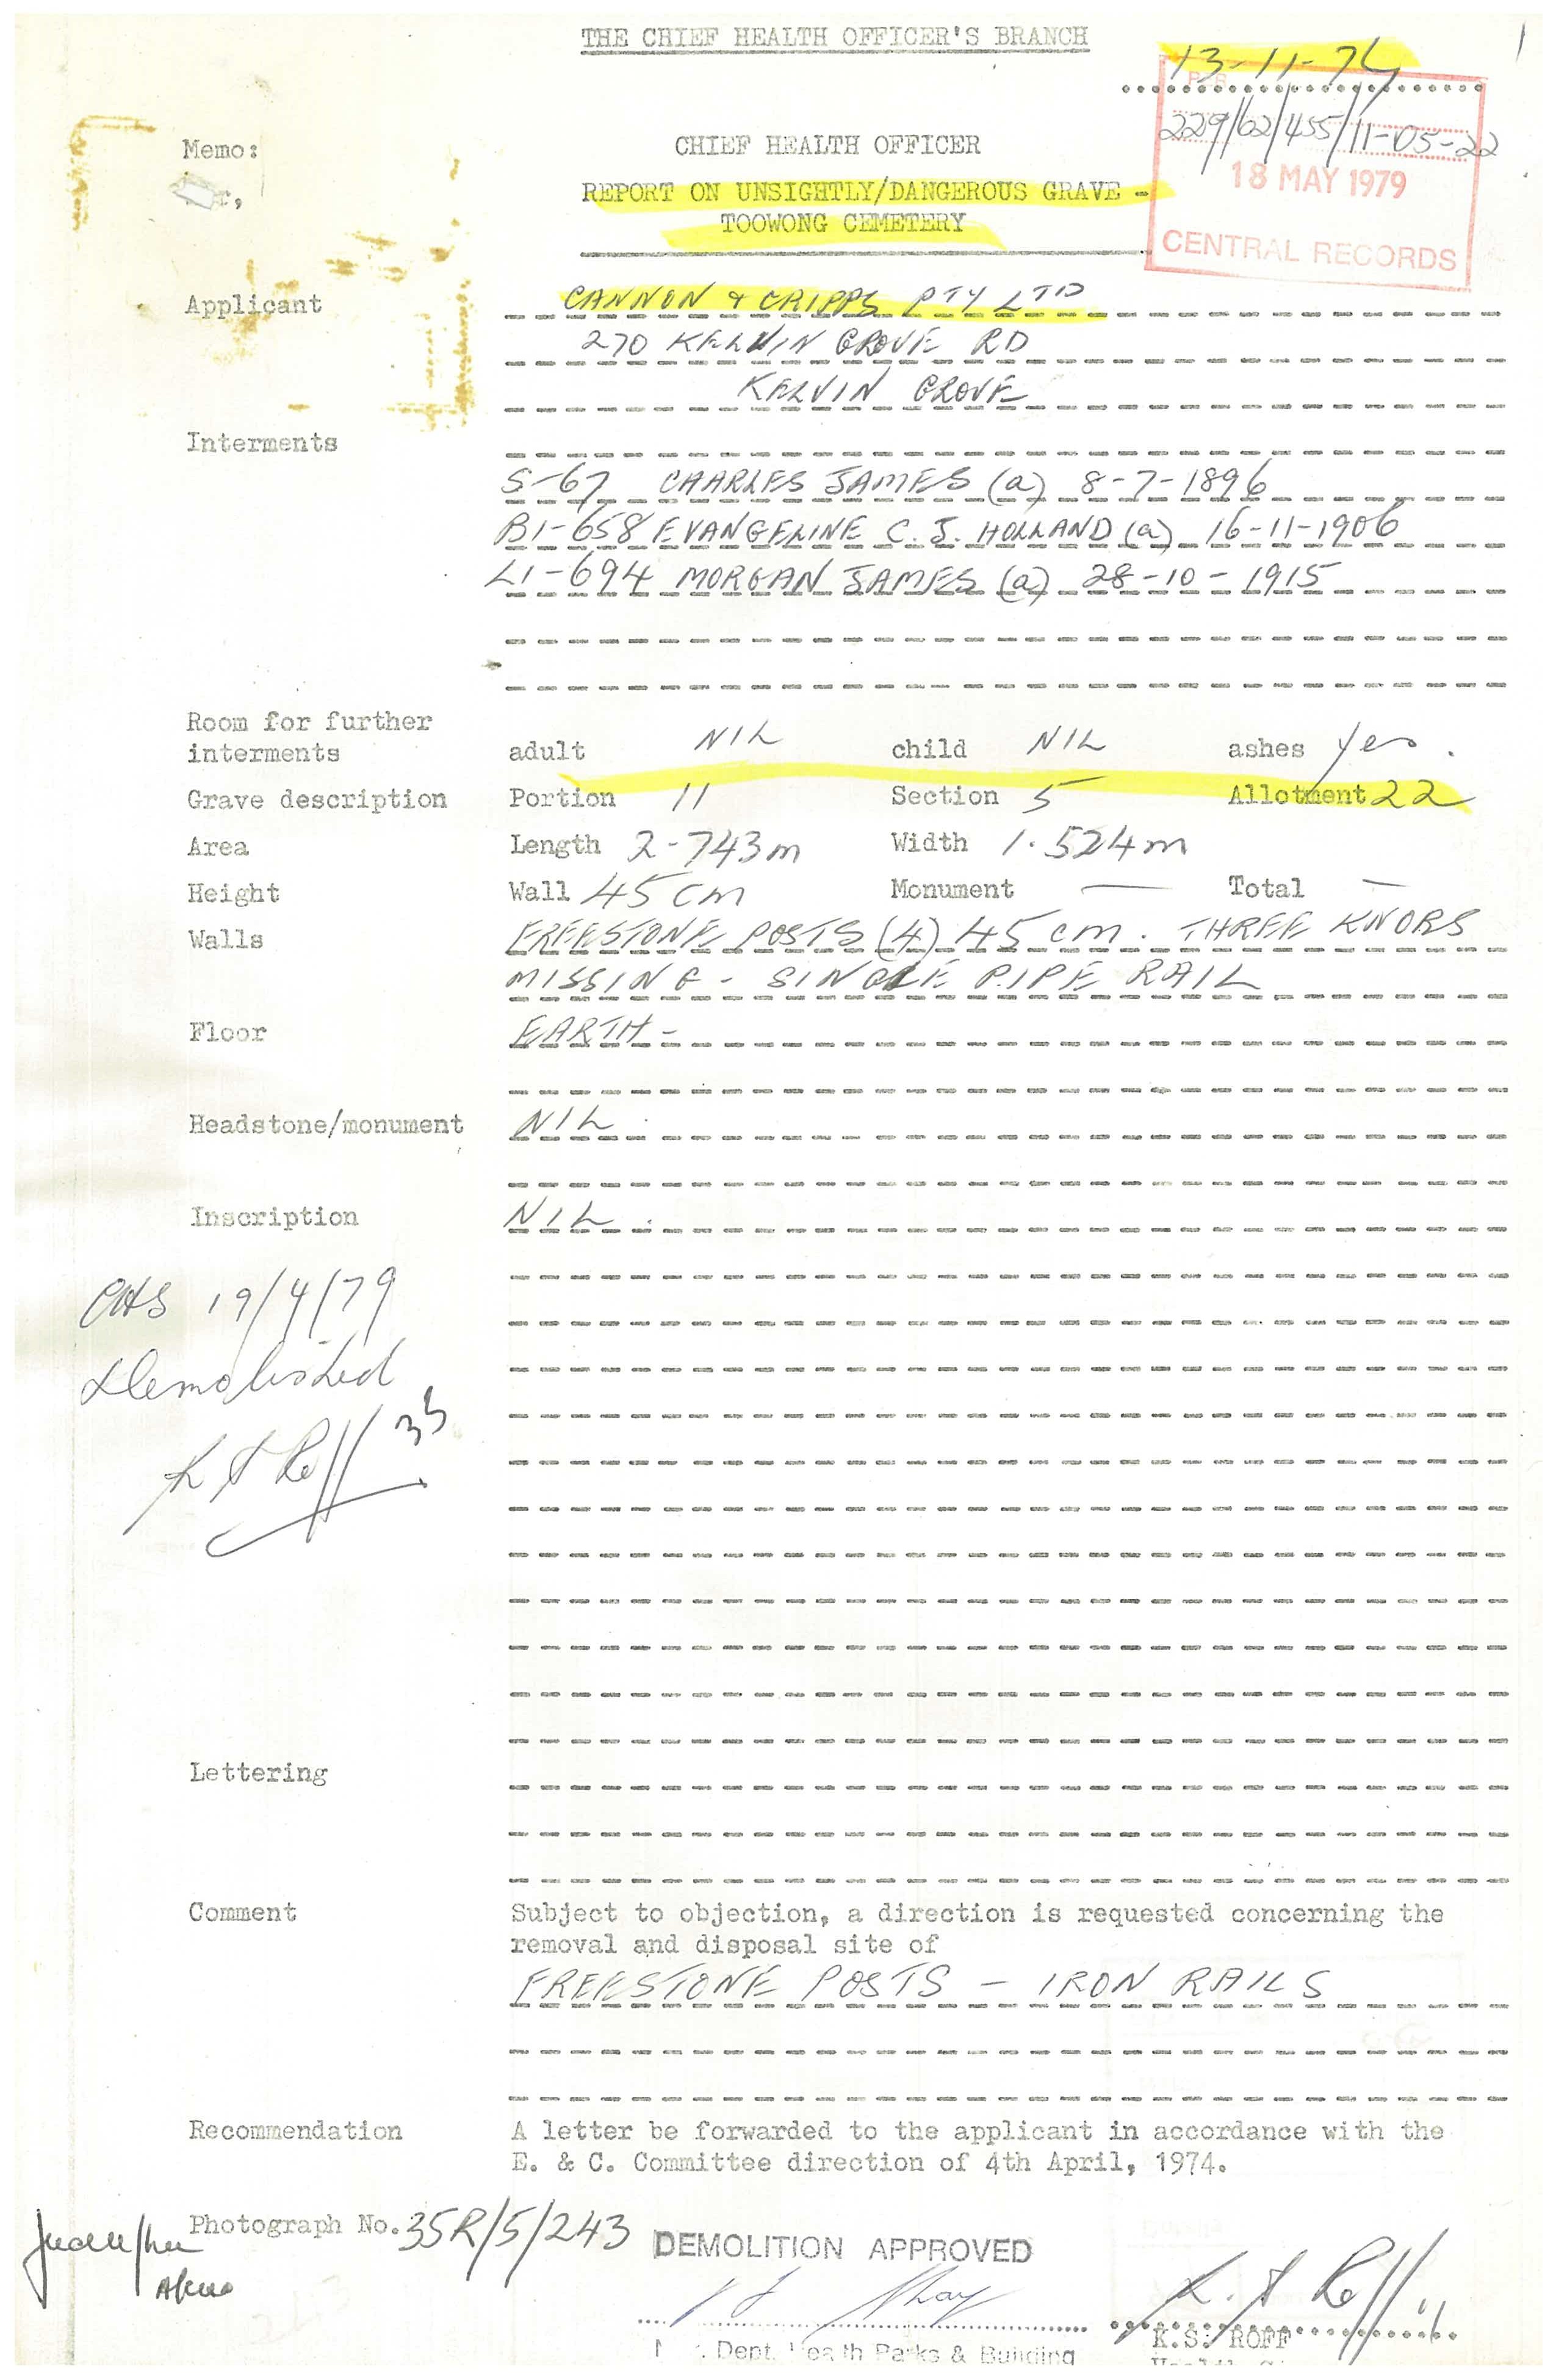 THE CHIEF HEALTH OFFICER'S BRANCH
13-11-74
229/62/455/11-05-22
18 MAY 1979
CENTRAL RECORDS
Memo:
CHIEF HEALTH OFFICER
REPORT ON UNSIGHTLY/DANGEROUS GRAVE -
TOOWONG CEMETERY
Applicant CANNON & CRIPPS PTY LTD
270 KELVIN GROVE RD
KELVIN GROVE
Interments
S-67 CHARLES JAMES (a) 8-7-1896
B1-658 EVANGELINE C. J. HOLLAND (a) 16-11-1906
L1-694 MORGAN JAMES (a) 28-10-1915
Room for further
interments adult NIL child NIL ashes yes.
Grave description Portion 11 Section 5 Allotment 22
Area Length 2.743m Width 1.524m
Height Wall 45 cm Monument — Total —
Walls FREESTONE POSTS (4) 45 cm. THREE KNOBS
MISSING - SINGLE PIPE RAIL
Floor EARTH -
Headstone/monument NIL.
Inscription NIL.
19/4/79
Demolished
35
Lettering
Comment Subject to objection, a direction is requested concerning the
removal and disposal site of
FREESTONE POSTS - IRON RAILS
Recommendation A letter be forwarded to the applicant in accordance with the
E. & C. Committee direction of 4th April, 1974.
Photograph No. 35R/5/243
DEMOLITION APPROVED
K.S. ROFF
Dept. Health Parks & Building